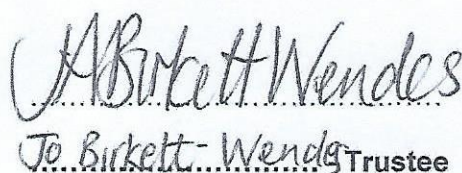 JABirkett Wendes
Jo Birkett-Wendes Trustee